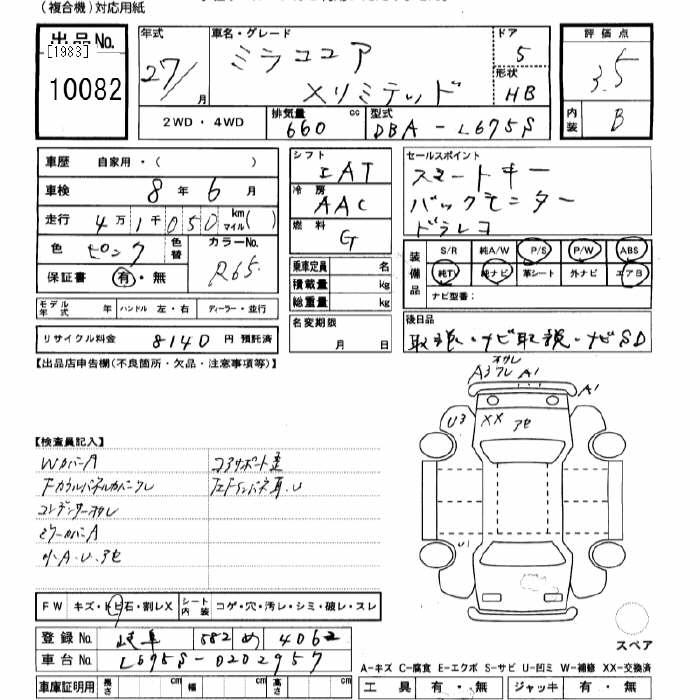 (複合機)対応用紙
出品No.
[1983]
10082
年式
27/
月
車名・グレード
ミラココア
Xリミテッド
ドア
5
形状
HB
2WD・4WD
排気量
660
cc
型式
DBA-L675S
評価点
3.5
内装
B
車歴 自家用・( )
車検 8年6月
走行 4万1千050 km マイル( )
色 ピンク
色替
カラーNo.
R65
保証書 有・無
モデル年式 年
ハンドル 左・右
ディーラー・並行
リサイクル料金 8140円 預託済
シフト
IAT
冷房
AAC
燃料
G
乗車定員 名
積載量 kg
総重量 kg
名変期限
月 日
セールスポイント
スマートキー
バックモニター
ドラレコ
装備品
S/R 純A/W P/S P/W ABS
純TV 純ナビ 革シート 外ナビ エアB
ナビ型番:
後日品
取説・ナビ取説・ナビSD
【出品店申告欄(不良箇所・欠品・注意事項等)】
【検査員記入】
WカバーA
コアサポート歪
コンデンサーオサレ
ミラーカバーA
小A・U・アセ
オサレ
A3 フレ A1
A1
U3
XX
アセ
U1
FW キズ・トビ石・割レX
シート内装 コゲ・穴・汚レ・シミ・破レ・スレ
登録No. 岐阜 582 め 4062
車台No. L675S-0202957
車庫証明用 長さ cm 幅 cm 高さ cm
スペア
A─キズ C─腐食 E─エクボ S─サビ U─凹ミ W─補修 XX─交換済
工具 有・無 ジャッキ 有・無